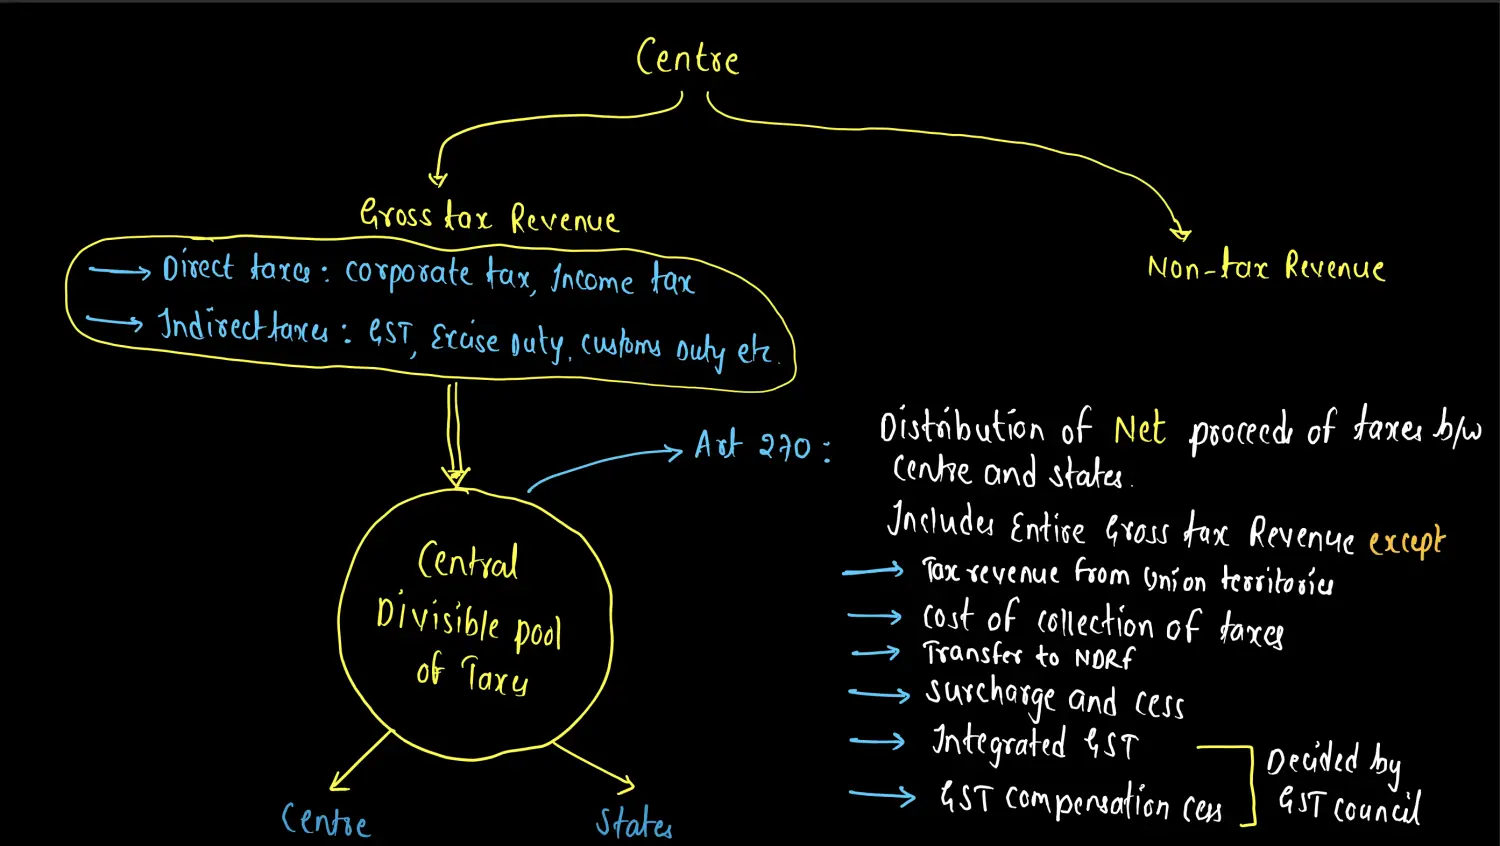 Centre
Gross tax Revenue
Non-tax Revenue
Direct taxes : corporate tax, Income tax
Indirect taxes : GST, Excise Duty, Customs Duty etc.
Art 270 :
Distribution of Net proceeds of taxes b/w
Centre and states.
Includes Entire Gross tax Revenue except
Tax revenue from Union territories
cost of collection of taxes
Transfer to NDRF
surcharge and cess
Integrated GST
GST compensation cess
Decided by
GST council
Central
Divisible pool
of Taxes
Centre
States